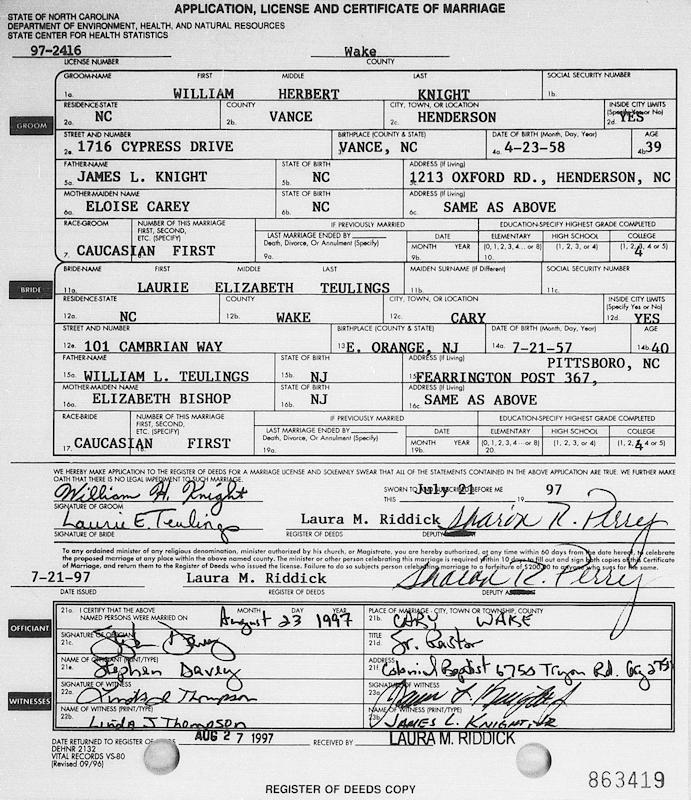 APPLICATION, LICENSE AND CERTIFICATE OF MARRIAGE
STATE OF NORTH CAROLINA
DEPARTMENT OF ENVIRONMENT, HEALTH, AND NATURAL RESOURCES
STATE CENTER FOR HEALTH STATISTICS
97-2416 Wake
LICENSE NUMBER COUNTY
GROOM-NAME FIRST MIDDLE LAST SOCIAL SECURITY NUMBER
1a. WILLIAM HERBERT KNIGHT 1b.
RESIDENCE-STATE COUNTY CITY, TOWN, OR LOCATION INSIDE CITY LIMITS
(Specify Yes or No)
2a. NC 2b. VANCE 2c. HENDERSON 2d. YES
GROOM
STREET AND NUMBER BIRTHPLACE (COUNTY & STATE) DATE OF BIRTH (Month, Day, Year) AGE
2e. 1716 CYPRESS DRIVE VANCE, NC 4a. 4-23-58 4b. 39
FATHER-NAME STATE OF BIRTH ADDRESS (If Living)
5a. JAMES L. KNIGHT 5b. NC 1213 OXFORD RD., HENDERSON, NC
MOTHER-MAIDEN NAME STATE OF BIRTH ADDRESS (If Living)
6a. ELOISE CAREY 6b. NC 6c. SAME AS ABOVE
RACE-GROOM NUMBER OF THIS MARRIAGE IF PREVIOUSLY MARRIED EDUCATION-SPECIFY HIGHEST GRADE COMPLETED
FIRST, SECOND, ETC. (SPECIFY) LAST MARRIAGE ENDED BY DATE ELEMENTARY HIGH SCHOOL COLLEGE
Death, Divorce, Or Annulment (Specify) MONTH YEAR (0, 1, 2, 3, 4... or 8) (1, 2, 3, or 4) (1, 2, 3, 4 or 5)
7. CAUCASIAN FIRST 9a. 9b. 10. 4
BRIDE-NAME FIRST MIDDLE LAST MAIDEN SURNAME (If Different) SOCIAL SECURITY NUMBER
11a. LAURIE ELIZABETH TEULINGS 11b. 11c.
BRIDE
RESIDENCE-STATE COUNTY CITY, TOWN, OR LOCATION INSIDE CITY LIMITS
(Specify Yes or No)
12a. NC 12b. WAKE 12c. CARY 12d. YES
STREET AND NUMBER BIRTHPLACE (COUNTY & STATE) DATE OF BIRTH (Month, Day, Year) AGE
12e. 101 CAMBRIAN WAY 13 E. ORANGE, NJ 14a. 7-21-57 14b. 40
FATHER-NAME STATE OF BIRTH ADDRESS (If Living) PITTSBORO, NC
15a. WILLIAM L. TEULINGS 15b. NJ 15 FEARRINGTON POST 367,
MOTHER-MAIDEN NAME STATE OF BIRTH ADDRESS (If Living)
16a. ELIZABETH BISHOP 16b. NJ 16c. SAME AS ABOVE
RACE-BRIDE NUMBER OF THIS MARRIAGE IF PREVIOUSLY MARRIED EDUCATION-SPECIFY HIGHEST GRADE COMPLETED
FIRST, SECOND, ETC. (SPECIFY) LAST MARRIAGE ENDED BY DATE ELEMENTARY HIGH SCHOOL COLLEGE
Death, Divorce, Or Annulment (Specify) MONTH YEAR (0, 1, 2, 3, 4... or 8) (1, 2, 3, or 4) (1, 2, 3, 4 or 5)
17. CAUCASIAN 18. FIRST 19a. 19b. 20. 4
WE HEREBY MAKE APPLICATION TO THE REGISTER OF DEEDS FOR A MARRIAGE LICENSE AND SOLEMNLY SWEAR THAT ALL OF THE STATEMENTS CONTAINED IN THE ABOVE APPLICATION ARE TRUE. WE FURTHER MAKE
OATH THAT THERE IS NO LEGAL IMPEDIMENT TO SUCH MARRIAGE.
William H. Knight SWORN TO AND SUBSCRIBED BEFORE ME
THIS July 21 19 97
SIGNATURE OF GROOM
Laurie E. Teulings Laura M. Riddick Sharon R. Perry
SIGNATURE OF BRIDE REGISTER OF DEEDS DEPUTY
To any ordained minister of any religious denomination, minister authorized by his church, or Magistrate, you are hereby authorized, at any time within 60 days from the date hereof, to celebrate
the proposed marriage at any place within the above named county. The minister or other person celebrating this marriage is required within 10 days to fill out and sign both copies of this Certificate
of Marriage, and return them to the Register of Deeds who issued the license. Failure to do so subjects person celebrating marriage to a forfeiture of $200.00 to anyone who sues for the same.
7-21-97 Laura M. Riddick Sharon R. Perry
DATE ISSUED REGISTER OF DEEDS DEPUTY
21a. I CERTIFY THAT THE ABOVE NAMED PERSONS WERE MARRIED ON MONTH DAY YEAR August 23 1997
PLACE OF MARRIAGE- CITY, TOWN OR TOWNSHIP, COUNTY
21b. CARY WAKE
OFFICIANT
SIGNATURE OF OFFICIANT TITLE
21c. Stephen Davey 21d. Sr. Pastor
NAME OF OFFICIANT (PRINT/TYPE) ADDRESS
21e. Stephen Davey 21f. Colonial Baptist 6750 Tryon Rd. Cary
SIGNATURE OF WITNESS SIGNATURE OF WITNESS
22a. Linda J Thompson 23a.
WITNESSES
NAME OF WITNESS (PRINT/TYPE) NAME OF WITNESS (PRINT/TYPE)
22b. Linda J Thompson 23b. JAMES L. KNIGHT, JR
DATE RETURNED TO REGISTER OF AUG 27 1997 RECEIVED BY LAURA M. RIDDICK
DEHNR 2132
VITAL RECORDS VS-80
(Revised 09/96)
REGISTER OF DEEDS COPY
863419